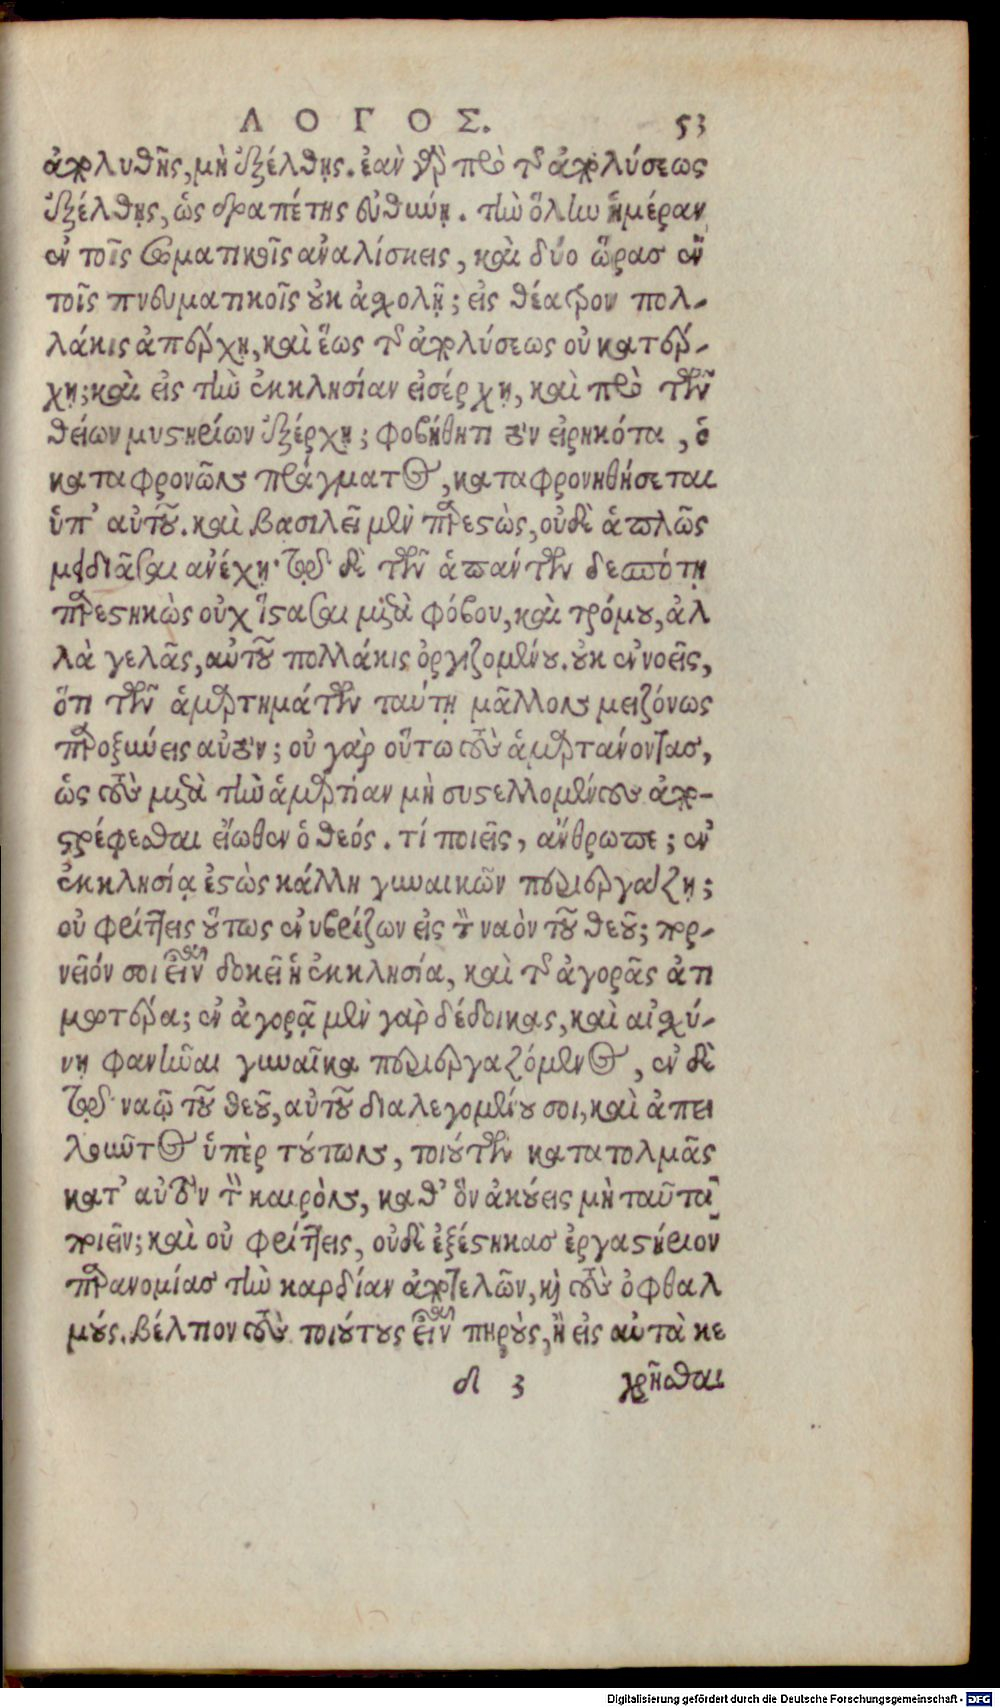 ΛΟΓΟΣ. 53
ἀπολυθῇς, μὴ ἐξέλθῃς. ἐὰν γὰρ πρὸ τῆς ἀπολύσεως
ἐξέλθῃς, ὡς δραπέτης εὐθύνῃ. τὴν ὅλην ἡμέραν
ἐν τοῖς σωματικοῖς ἀναλίσκεις, καὶ δύο ὥρασ ἐν
τοῖς πνευματικοῖς οὐκ ἀσχολῇ; εἰς θέατρον πολ-
λάκις ἀπέρχῃ, καὶ ἕως τῆς ἀπολύσεως οὐκ ἀπέρ-
χῃ; καὶ εἰς τὴν ἐκκλησίαν εἰσέρχῃ, καὶ πρὸ τῶν
θείων μυστηρίων ἐξέρχῃ; φοβήθητι τὸν εἰρηκότα, ὁ
καταφρονῶν πράγματος, καταφρονηθήσεται
ὑπ' αὐτοῦ. καὶ βασιλεῖ μὲν παρεστὼς, οὐδὲ ἁπλῶς
μειδιᾶσαι ἀνέχῃ· τῷ δὲ τῶν ἁπάντων δεσπότῃ
παρεστηκὼς οὐχ ἵστασαι μετὰ φόβου, καὶ τρόμου, ἀλ
λὰ γελᾶς, αὐτοῦ πολλάκις ὀργιζομένου. οὐκ ἐννοεῖς,
ὅτι τῶν ἁμαρτημάτων ταύτῃ μᾶλλον μειζόνως
παροξύνεις αὐτόν; οὐ γὰρ οὕτω τοὺς ἁμαρτάνοντασ,
ὡς τοὺς μετὰ τὴν ἁμαρτίαν μὴ συστελλομένους ἀπο-
στρέφεσθαι εἴωθεν ὁ θεός. τί ποιεῖς, ἄνθρωπε; ἐν
ἐκκλησίᾳ ἑστὼς κάλλη γυναικῶν περιεργάζῃ;
οὐ φρίττεις οὕτως ἐνυβρίζων εἰς τὸν ναὸν τοῦ θεοῦ; πορ-
νεῖόν σοι εἶναι δοκεῖ ἡ ἐκκλησία, καὶ τῆς ἀγορᾶς ἀτι
μοτέρα; ἐν ἀγορᾷ μὲν γὰρ δέδοικας, καὶ αἰσχύ-
νῃ φανῆναι γυναῖκα περιεργαζόμενος, ἐν δὲ
τῷ ναῷ τοῦ θεοῦ, αὐτοῦ διαλεγομένου σοι, καὶ ἀπει
λοῦντος ὑπὲρ τούτων, τοιούτων κατατολμᾶς
κατ' αὐτὸν τὸν καιρὸν, καθ' ὃν ἀκούεις μὴ ταῦτα
ποιεῖν; καὶ οὐ φρίττεις, οὐδὲ ἐξέστηκασ ἐργαστήριον
παρανομίασ τὴν καρδίαν ἀποτελῶν, καὶ τοὺς ὀφθαλ
μούς. βέλτιον τοὺς τοιούτους εἶναι πηροὺς, ἢ εἰς αὐτὰ κε
d 3 χρῆσθαι
Digitalisierung gefördert durch die Deutsche Forschungsgemeinschaft - DFG